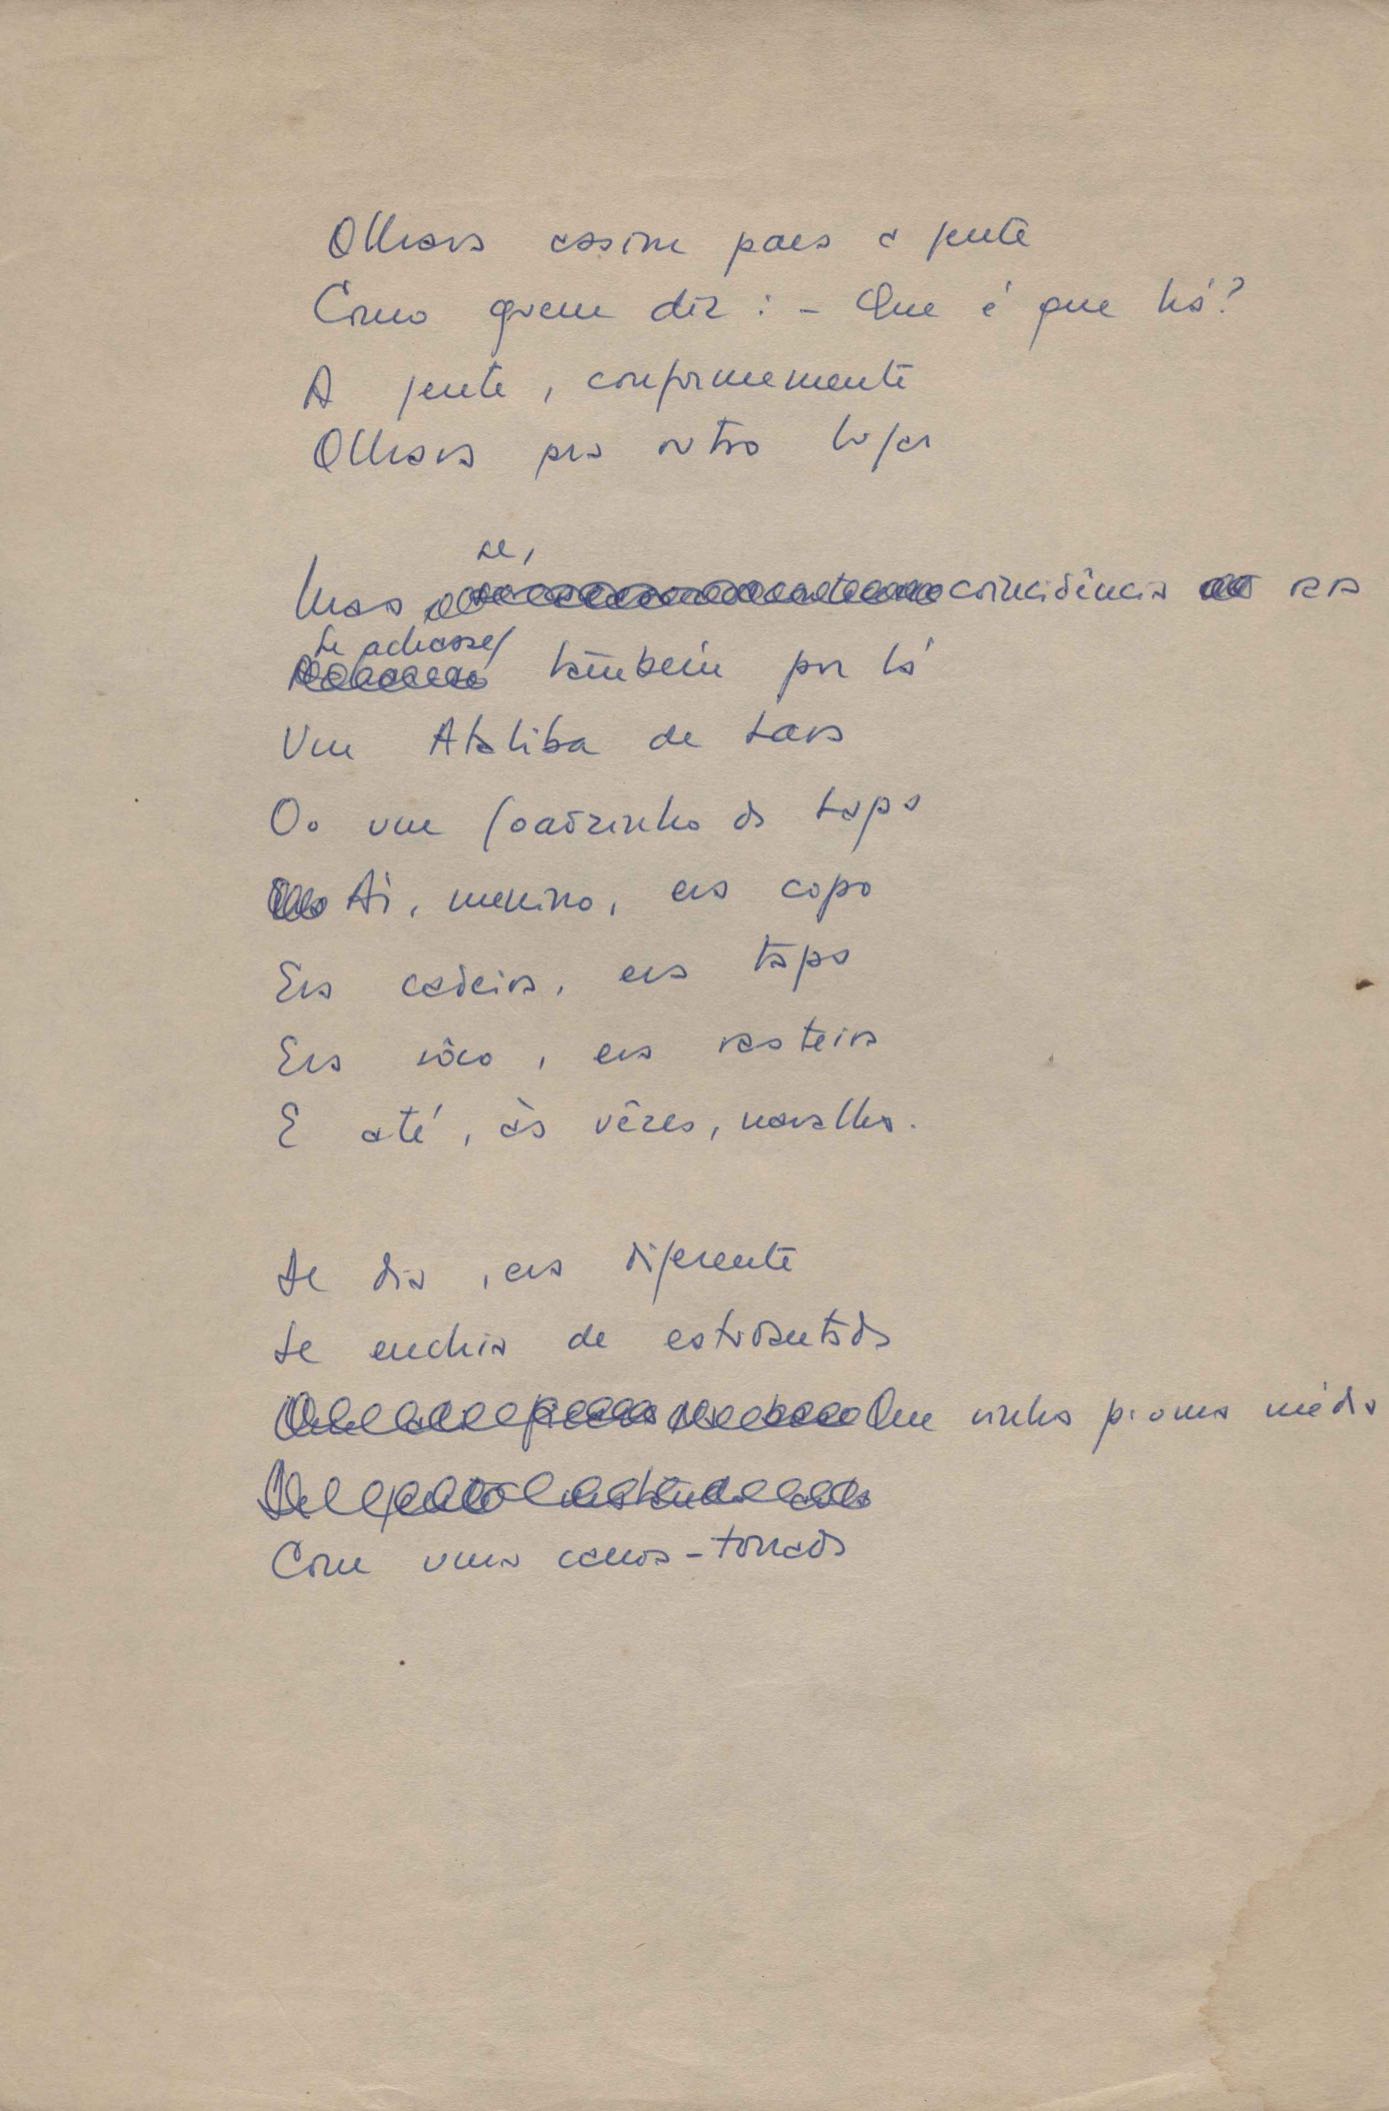 Olhava assim para a gente
Como quem diz: - Que é que há?
A gente, conformemente
Olhava pra outro lugar
se,
Mas, coincidência rara
Se achasse
também por lá
Um Ataliba de Lara
Ou um Joãozinho da Lapa
Ai, menino, era copo
Era cadeira, era tapa
Era sôco, era rasteira
E até, às vêzes, navalha.
De dia, era diferente
Se enchia de
Que vinha média
Com uma canoa-torrada